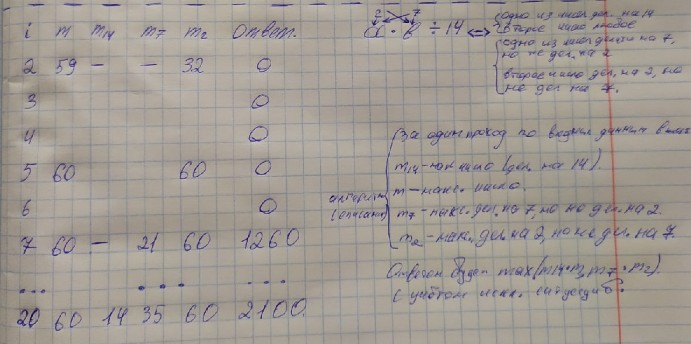 i m m14 m7 m2 Ответ.
2 59 — — 32 0
3 0
4 0
5 60 60 0
6 0
7 60 — 21 60 1260
... ... ...
20 60 14 35 60 2100
2 7
a · b ÷ 14 <=>
одно из чисел дел. на 14
второе число любое
одно из чисел делится на 7,
но не дел. на 2
второе число дел. на 2, но
не дел на 7.
алгоритм
(описание)
За один проход по входным данным
m14 - макс число (дел. на 14).
m — макс. число.
m7 - макс. дел. на 7, но не дел. на 2.
m2 - макс. дел. на 2, но не дел. на 7.
Ответом будет max(m14*m, m7*m2).
с учётом искл. ситуаций.